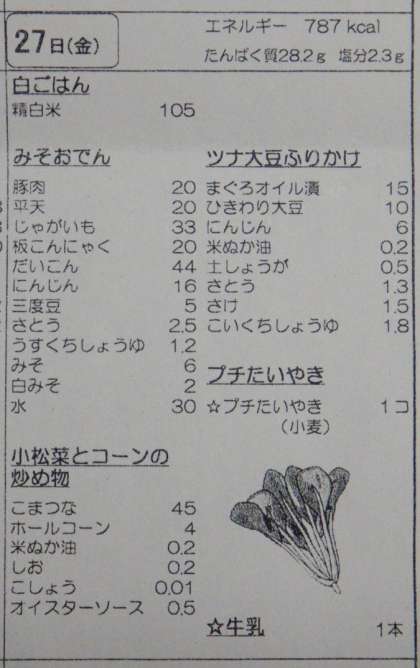 27日(金)
エネルギー 787 kcal
たんぱく質28.2g 塩分2.3g
白ごはん
精白米 105
みそおでん
豚肉 20
平天 20
じゃがいも 33
板こんにゃく 20
だいこん 44
にんじん 16
三度豆 5
さとう 2.5
うすくちしょうゆ 1.2
みそ 6
白みそ 2
水 30
小松菜とコーンの
炒め物
こまつな 45
ホールコーン 4
米ぬか油 0.2
しお 0.2
こしょう 0.01
オイスターソース 0.5
ツナ大豆ふりかけ
まぐろオイル漬 15
ひきわり大豆 10
にんじん 6
米ぬか油 0.2
土しょうが 0.5
さとう 1.3
さけ 1.5
こいくちしょうゆ 1.8
プチたいやき
☆プチたいやき 1コ
(小麦)
☆牛乳 1本